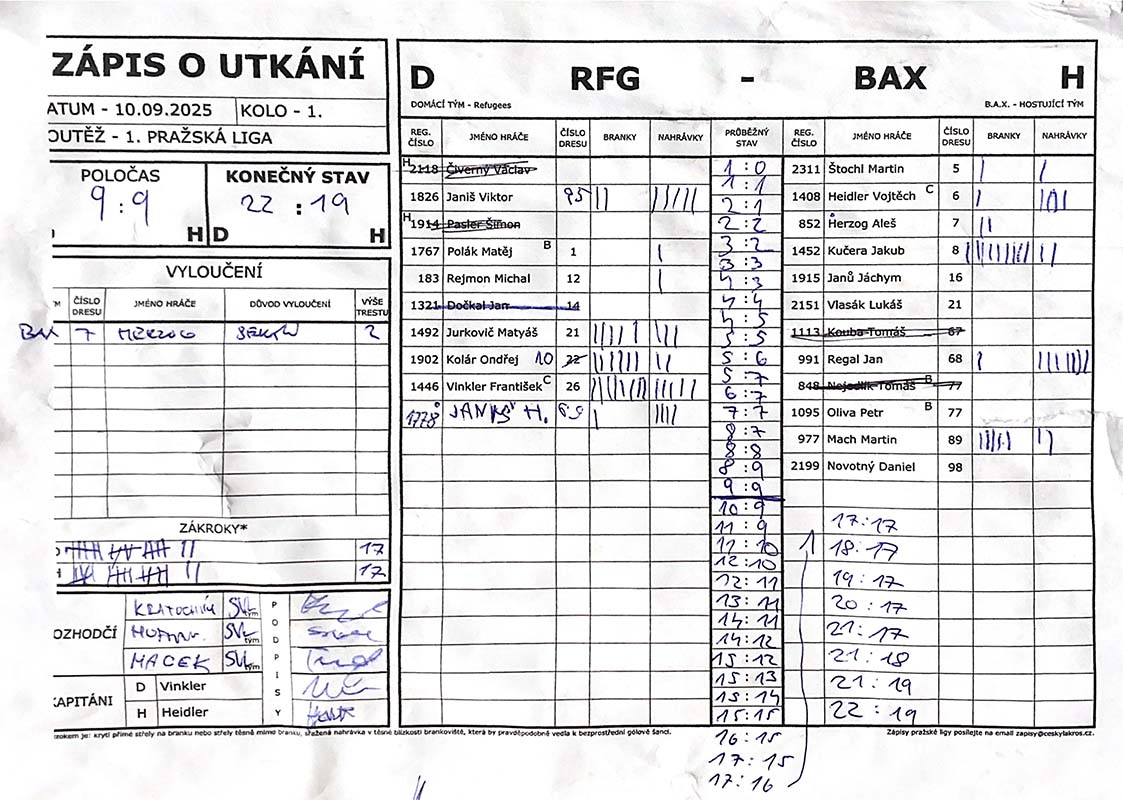 ZÁPIS O UTKÁNÍ
ATUM - 10.09.2025 KOLO - 1.
OUTĚŽ - 1. PRAŽSKÁ LIGA
POLOČAS KONEČNÝ STAV
9 : 9 22 : 19
H D H
VYLOUČENÍ
ČÍSLO DRESU JMÉNO HRÁČE DŮVOD VYLOUČENÍ VÝŠE TRESTU
BAX 7 HERZOG 2
ZÁKROKY*
17
H 17
OZHODČÍ KRATOCHVÍL SVL tým
SVL tým
MACEK SVL tým
PODPISY
KAPITÁNI D Vinkler
H Heidler
D RFG - BAX H
DOMÁCÍ TÝM - Refugees B.A.X. - HOSTUJÍCÍ TÝM
REG. ČÍSLO JMÉNO HRÁČE ČÍSLO DRESU BRANKY NAHRÁVKY PRŮBĚŽNÝ STAV REG. ČÍSLO JMÉNO HRÁČE ČÍSLO DRESU BRANKY NAHRÁVKY
H 2118 Čiverný Václav 1:0 2311 Štochl Martin 5
1826 Janiš Viktor 95 1:1 1408 Heidler Vojtěch C 6
2:1
H 1914 Pasler Šimon 2:2 852 Herzog Aleš 7
1767 Polák Matěj B 1 3:2 1452 Kučera Jakub 8
3:3
183 Rejmon Michal 12 4:3 1915 Janů Jáchym 16
1321 Dočkal Jan 14 4:4 2151 Vlasák Lukáš 21
4:5
1492 Jurkovič Matyáš 21 5:5 1113 Kouba Tomáš 67
1902 Kolár Ondřej 10 22 5:6 991 Regal Jan 68
5:7
1446 Vinkler František C 26 6:7 848 Nejedlík Tomáš B 77
1778 JANIŠ H. 7:7 1095 Oliva Petr B 77
8:7 977 Mach Martin 89
8:8
8:9 2199 Novotný Daniel 98
9:9
10:9
11:9 17:17
11:10 18:17
12:10
12:11 19:17
13:11 20:17
14:11 21:17
14:12
15:12 21:18
15:13 21:19
15:14
15:15 22:19
16:15
17:15
17:16
krokem je: krytí přímé střely na branku nebo střely těsně mimo branku, sražená nahrávka v těsné blízkosti brankoviště, která by pravděpodobně vedla k bezprostřední gólové šanci. Zápisy pražské ligy posílejte na email zapisy@ceskylakros.cz.